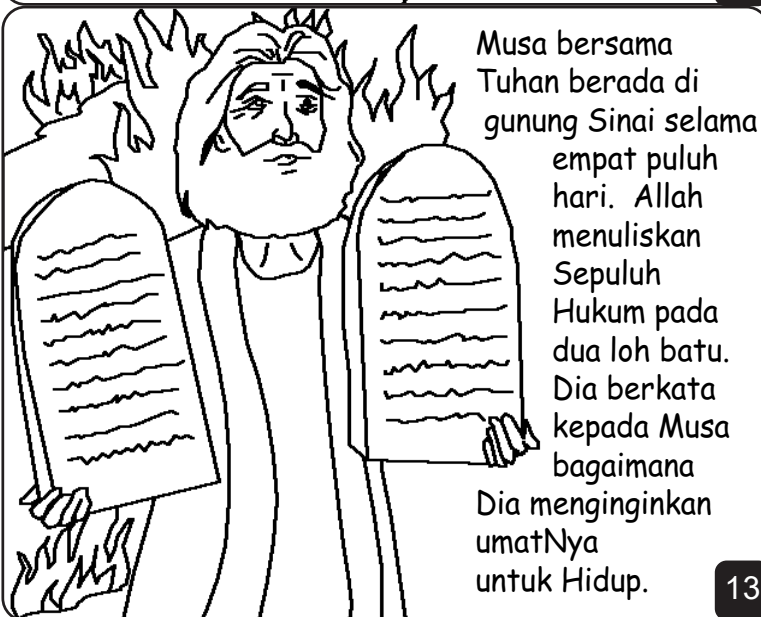 Musa bersama
Tuhan berada di
gunung Sinai selama
empat puluh
hari. Allah
menuliskan
Sepuluh
Hukum pada
dua loh batu.
Dia berkata
kepada Musa
bagaimana
Dia menginginkan
umatNya
untuk Hidup.
13